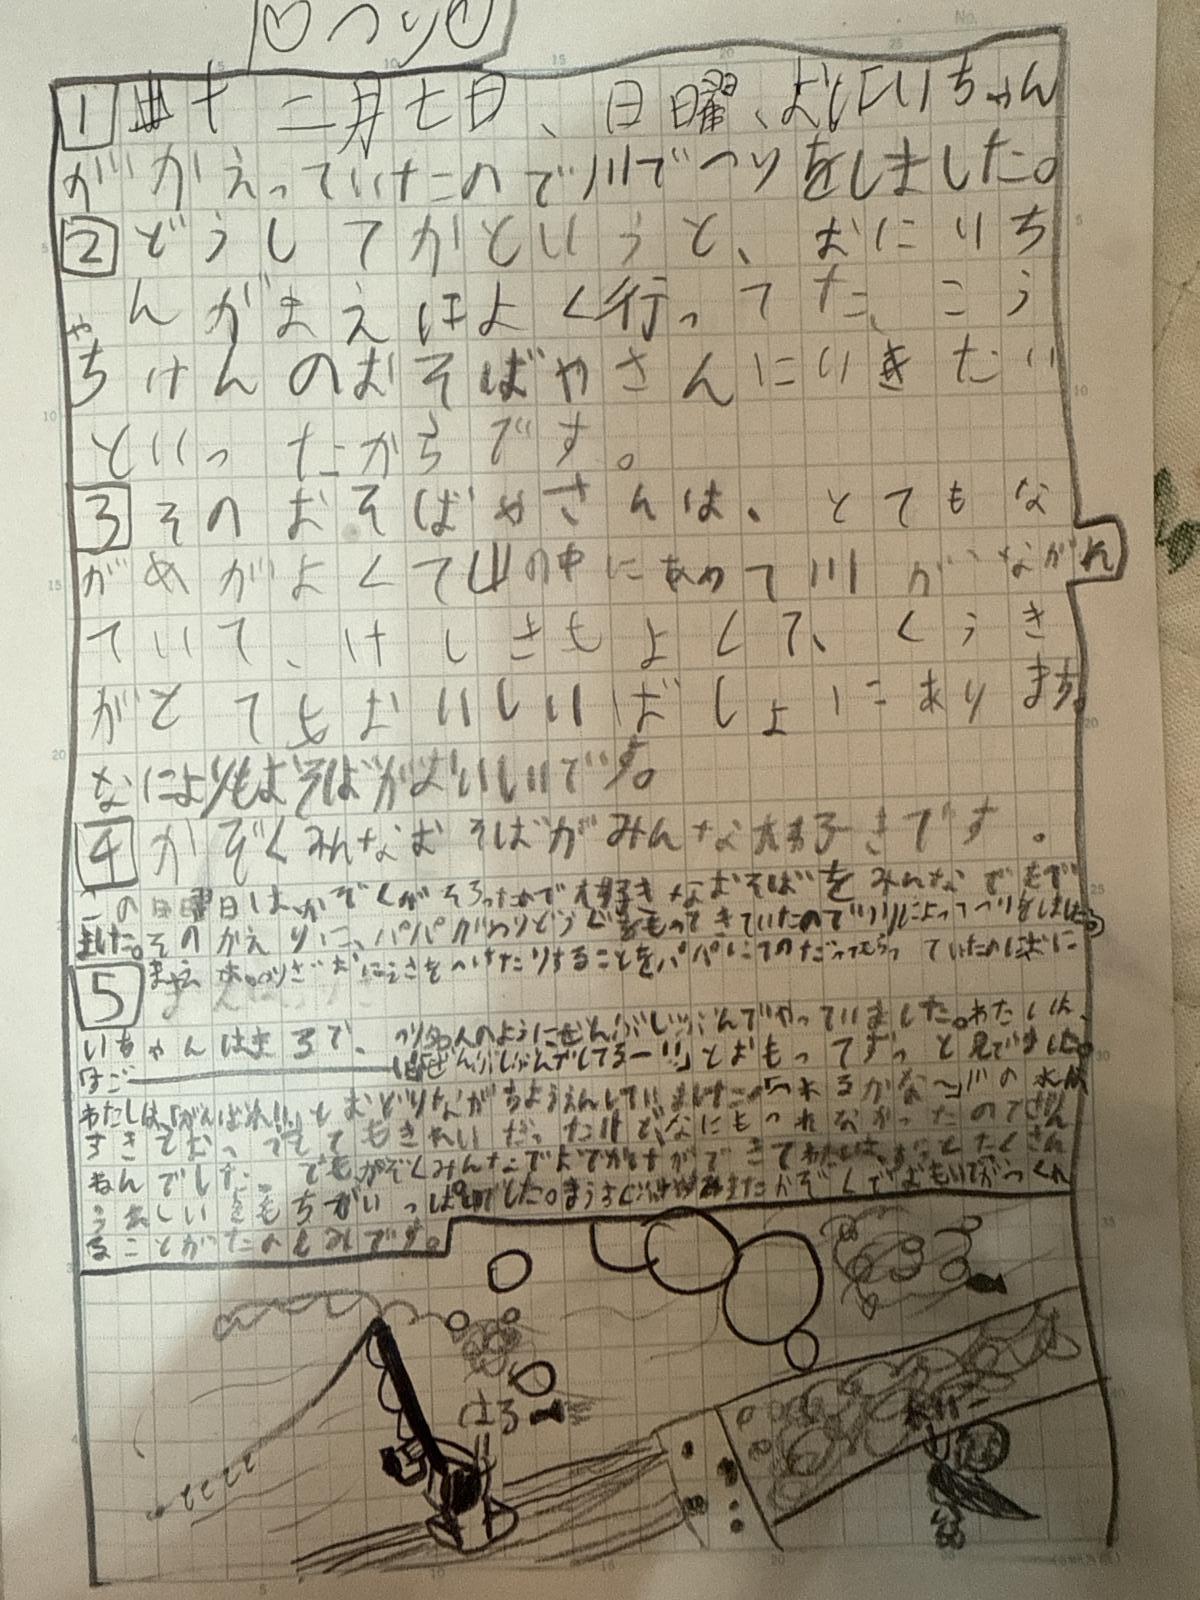 つり
1 十二月七日、日曜、おにいちゃん
がかえっていたので川でつりをしました。
2 どうしてかというと、おにいち
ゃんがまえはよく行ってた、こう
ちけんのおそばやさんにいきたい
といったからです。
3 そのおそばやさんは、とてもな
がめがよくて山の中にあって川がながれ
ていて、けしきもよくて、くうき
がとてもおいしいばしょにあります。
なによりもおそばがおいしいです。
4 かぞくみんなおそばがみんな大好きです。
この日曜日はかぞくがそろったので大好きなおそばをみんなで
ました。そのかえりに、パパがつりどうぐをもってきていたので川によってつりをしました。
5 まえは、つりざおにえさをつけたりすることをパパにてつだってもらっていたのにおに
いちゃんはまるで、つり名人のようにぜんぶじぶんでやっていました。わたしは、
「すごーーいぜんぶじぶんでしてるー!!」とおもってずっと見てました。
わたしは、「がんばれ!!」とおどりながらおうえんしていました。「つれるかな〜」川の水は
すきとおっててとてもきれいだったけど、なにもつれなかったのでざん
ねんでした。でもかぞくみんなでおでかけができてわたしは、とたくさん
うれしいきもちがいっぱいでした。もうすぐ またかぞくでおもいでがつくれ
ることがたのしみです。
はる